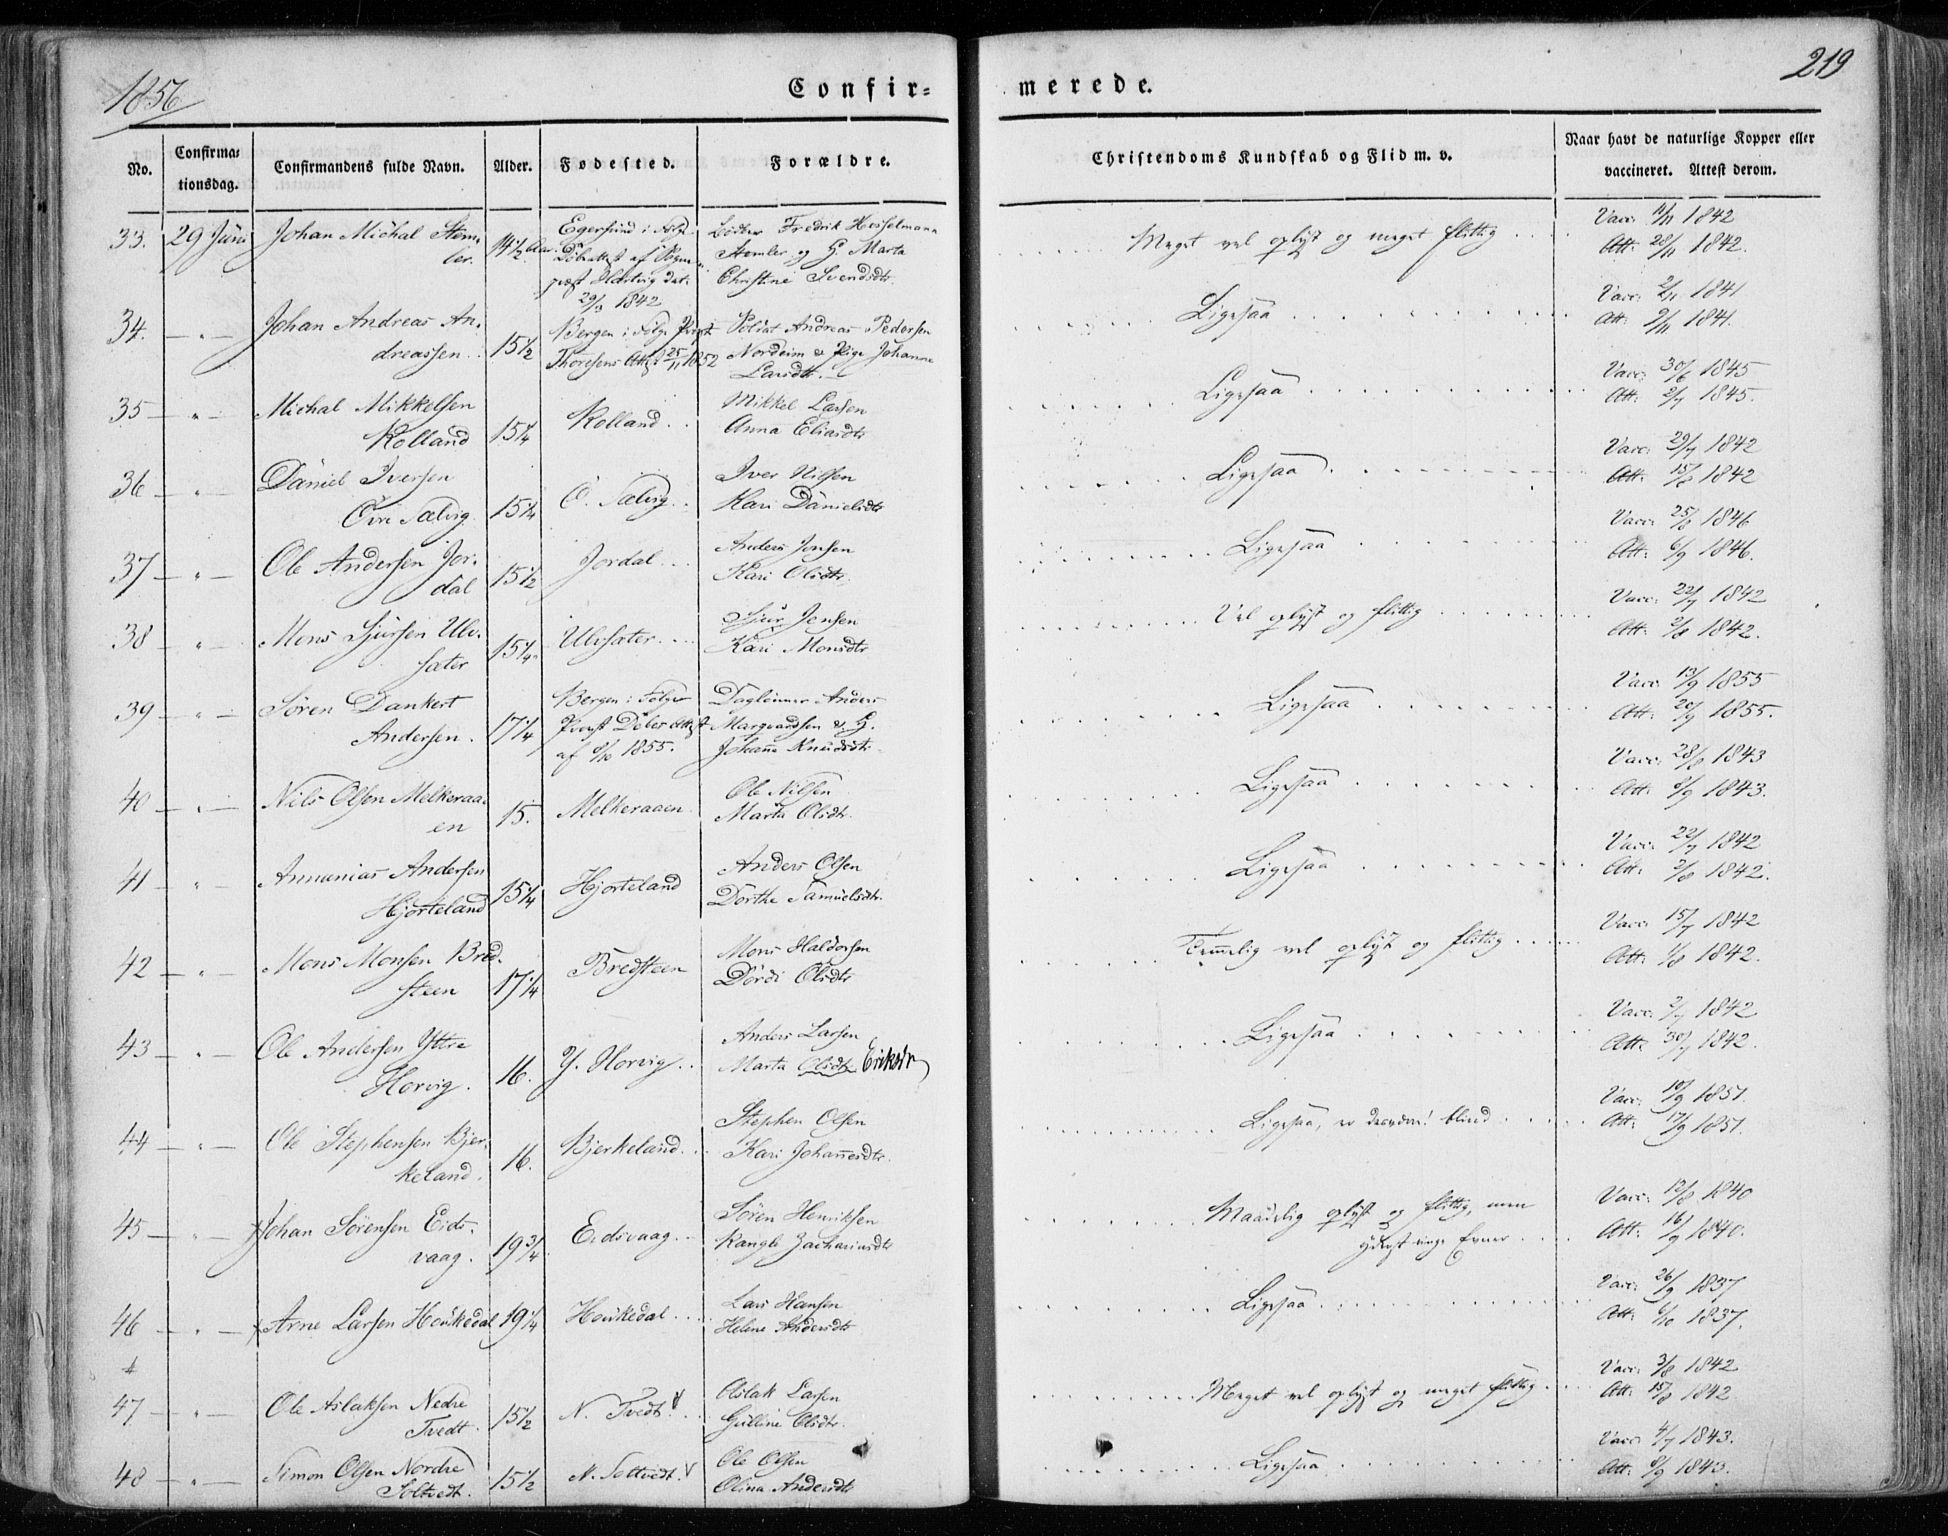 1856
Confir=
merede.
219
No.
Confirma=
tionsdag.
Confirmandens fulde Navn.
Alder.
Fødested.
Forældre.
Christendoms Kundskab og Flid m. v.
Naar havt de naturlige Kopper eller
vaccineret. Attest derom.
33. 29 Juni Johan Michal Stem-
ler. 14 1/2 Aar.
Egersund i Følge
Døbeattest af Sogne-
præst Hertvig dat.
29/3 1842
Bødker Fredrik Hesselmann
Stemler og H. Marta
Christine Svendsdtr.
Meget vel oplyst og meget flittig
Vacc. 11/11 1842
Att. 28/11 1842.
34. — " — Johan Andreas An-
dreassen. 15 1/2
Bergen i Følge Provst
Thoresens Attest 25/11 1852
Soldat Andreas Pedersen
Nordeim & Pige Johanna
Larsdtr.
Ligesaa
Vacc. 2/11 1841
Att. 9/11 1841.
35 — " — Michal Mikkelsen
Kolland 15 1/4
Kolland
Mikkel Larsen
Anna Eliasdtr
Ligesaa
Vacc. 30/6 1845
Att. 2/7 1845.
36 — " — Daniel Iversen
Övre Sælvig. 15 1/4
Ö. Sælvig
Iver Nilsen
Kari Danielsdtr
Ligesaa
Vacc. 29/7 1842
Att. 15/8 1842
37 — " — Ole Andersen Jor-
dal 15 1/2
Jordal
Anders Jonsen
Kari Olsdtr.
Ligesaa
Vacc. 25/8 1846
Att. 6/9 1846.
38 — " — Mons Sjursen Ulv-
sæter 15 1/4
Ulvsæter
Sjur Jensen
Kari Monsdtr
Vel oplyst og flittig
Vacc. 22/7 1842
Att. 2/8 1842.
39 — " — Sören Dankert
Andersen. 17 1/4
Bergen i Følge
Provst Døbes Attest
af 9/10 1855.
Daglönner Anders
Marqvardsen & H.
Johanne Knudsdtr.
Ligesaa
Vacc. 13/9 1855
Att. 20/9 1855.
40 — " — Nils Olsen Melkeraa-
en 15.
Melkeraaen
Ole Nilsen
Marta Olsdtr.
Ligesaa
Vacc. 28/8 1843
Att. 8/9 1843.
41 — " — Annanias Andersen
Hjorteland 15 1/4
Hjorteland
Anders Olsen
Dorthe Samuelsdtr.
Ligesaa
Vacc. 22/7 1842
Att. 2/8 1842.
42 — " — Mons Monsen Bred-
steen 17 1/4
Bredsteen
Mons Haldorsen
Dördi Olsdtr
Temmelig vel oplyst og flittig
Vacc. 15/7 1842
Att. 1/8 1842.
43 — " — Ole Andersen Yttre
Horvig. 16.
Y. Horvig
Anders Larsen
Marta Olsdtr Eriksdr
Ligesaa
Vacc. 2/7 1842
Att. 30/7 1842.
44 — " — Ole Stephensen Bjer-
keland. 16.
Bjerkeland
Stephen Olsen
Kari Johannesdtr.
Ligesaa, er desuden blind
Vacc. 10/9 1851.
Att. 17/9 1851.
45 — " — Johan Sörensen Eids-
vaag. 19 3/4
Eidsvaag
Sören Henriksen
Rangle Zachariasdtr
Maadelig oplyst og flittig, men
yderst ringe Evner
Vacc. 12/8 1840
Att. 16/9 1840.
46 — " — Arne Larsen Houkedal 19 1/4
Houkedal
Lars Hansen
Helene Andersdtr
Ligesaa
Vacc. 26/9 1837
Att. 6/10 1837.
47 — " — Ole Aslaksen Nedre
Tvedt. 15 1/2
N. Tvedt
Aslak Larsen
Gulline Olsdtr.
Meget vel oplyst og meget flittig
Vacc. 3/8 1842
Att. 15/8 1842
48 — " — Simon Olsen Nordre
Soltvedt. 15 1/2
N. Soltvedt
Ole Olsen
Olina Andersdtr
Ligesaa
Vacc. 4/7 1843.
Att. 8/9 1843.